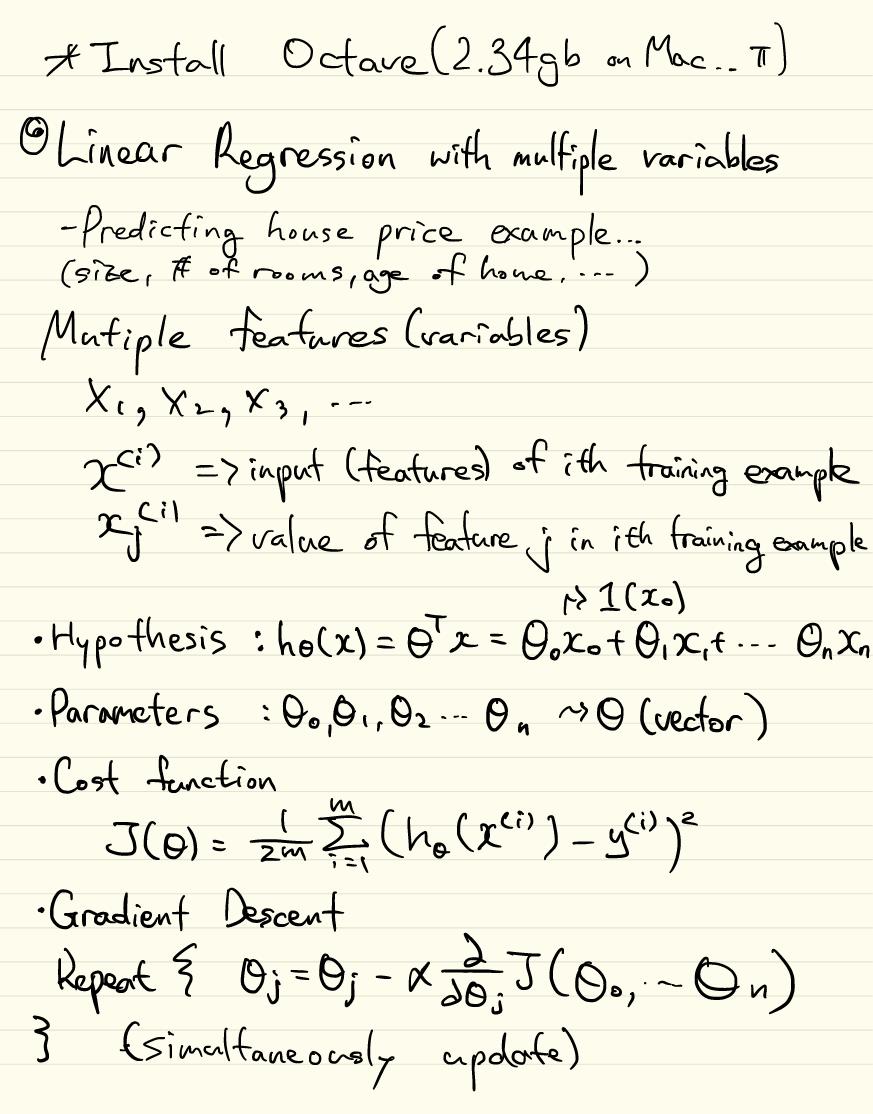 * Install Octave (2.34gb on Mac.. ㅠ)
◎ Linear Regression with multiple variables
- Predicting house price example...
(size, # of rooms, age of home, ...)
Mutiple features (variables)
x₁, x₂, x₃, ...
x⁽ⁱ⁾ => input (features) of ith training example
xⱼ⁽ⁱ⁾ => value of feature j in ith training example
↝ 1 (x₀)
• Hypothesis : hθ(x) = θᵀx = θ₀x₀ + θ₁x₁ + ... θₙxₙ
• Parameters : θ₀, θ₁, θ₂ ... θₙ ↝ θ (vector)
• Cost function
J(θ) = 1/2m ∑ᵢ₌₁ᵐ (hθ(x⁽ⁱ⁾) - y⁽ⁱ⁾)²
• Gradient Descent
Repeat { θⱼ = θⱼ - α ∂/∂θⱼ J(θ₀, ... θₙ)
} (simultaneously update)